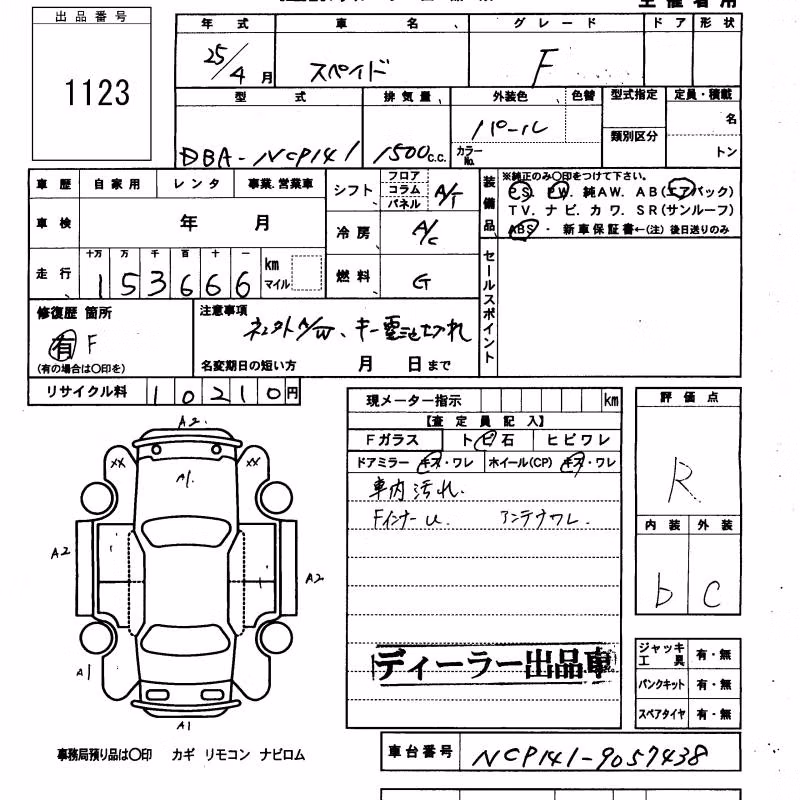 出品番号
1123
年式 車名、 グレード ドア 形状
25/4月 スペイド F
型式 排気量、 外装色 色替 型式指定 定員・積載
名
類別区分
DBA-NCP141 1500c.c. パール カラーNo. トン
車歴 自家用 レンタ 事業.営業車
シフト、 フロア コラム パネル A/T
装備品、 ※純正のみ○印をつけて下さい。
P.S. P.W. 純AW. AB(エアバック)
TV. ナビ. カワ. SR(サンルーフ)
ABS ・ 新車保証書←(注) 後日送りのみ
車検 年 月
冷房、 A/C
走行、 十万 万 千 百 十 一 km マイル
153666
燃料、 G
セールスポイント
修復歴 箇所
有 F
(有の場合は○印を)
注意事項
キー電池切れ
名変期日の短い方 月 日まで
リサイクル料 10210円
現メーター指示 km
【査定員記入】
Fガラス トビ石 ヒビワレ
ドアミラー キズ・ワレ ホイール(CP) キズ・ワレ
車内汚れ.
Fインナーu. アンテナワレ.
ディーラー出品車
評価点
R
内装 外装
b C
A2
XX XX
A1.
A2 A2
A1
A1
ジャッキ工具 有・無
パンクキット 有・無
スペアタイヤ 有・無
事務局預り品は○印 カギ リモコン ナビロム
車台番号 NCP141-9057438